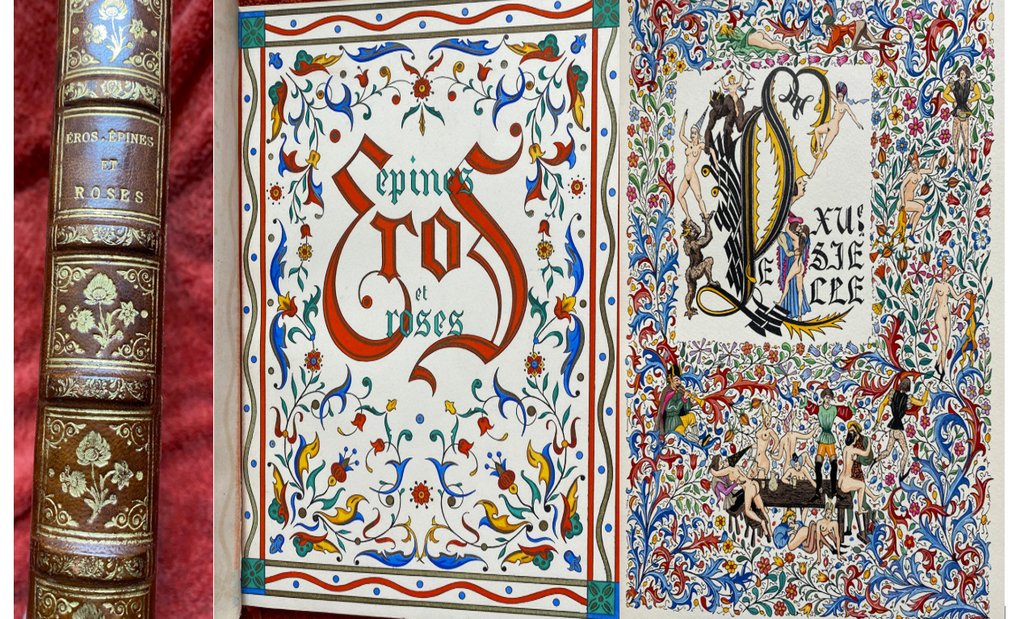 ÉROS-ÉPINES
ET
ROSES
épines
Eros
et
roses
LE XVe
SIE
CLE